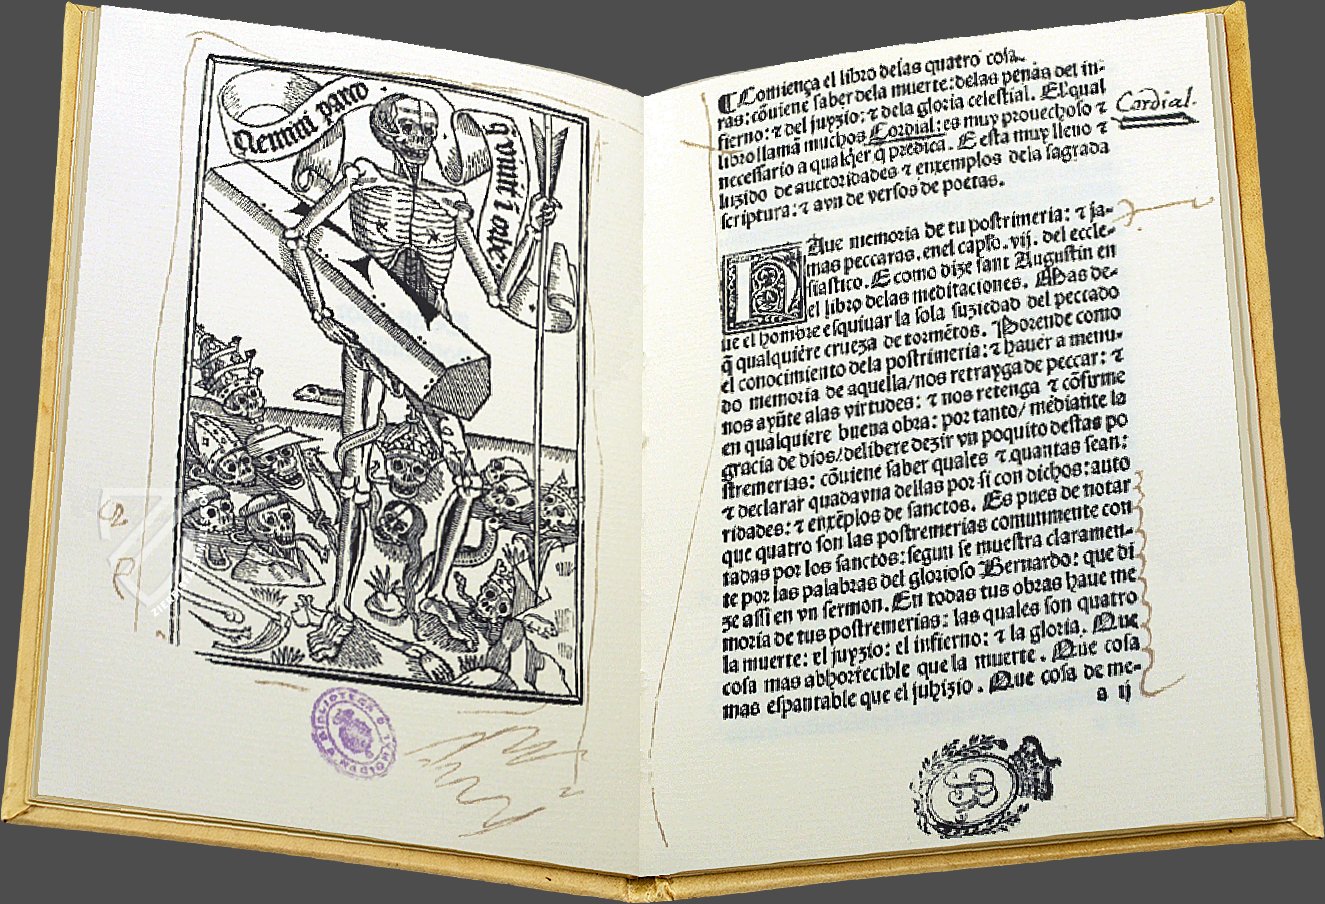 Nemini parco
q̄ouiui ole
¶Comiença el libro delas quatro cosas
ras: cōuiene saber dela muerte: delas penas del in-
fierno: ⁊ del juyzio: ⁊ dela gloria celestial. El qual
libro llamā muchos Cordial: es muy prouechoso ⁊
necessario a qualq̄er q̄ predica. E esta muy lleno ⁊
luzido de auctoridades ⁊ enxemplos dela sagrada
scriptura: ⁊ avn de versos de poetas.
Cordial.
HAue memoria de tu postrimeria: ⁊ ja-
mas peccaras. enel capſo. vij. del eccle-
siastico. E como dize sant Augustin en
el libro delas meditaciones. Mas de-
ue el hombre esquiuar la sola suziedad del peccado
q̄ qualquiere crueza de tormētos. Porende como
el conocimiento dela postrimeria: ⁊ hauer a menu-
do memoria de aquella/nos retrayga de peccar: ⁊
nos ayūte alas virtudes: ⁊ nos retenga ⁊ cōfirme
en qualquiere buena obra: por tanto/ mediāte la
gracia de dios/delibere dezir vn poquito destas po
stremerias: cōuiene saber quales ⁊ quantas sean:
⁊ declarar quadavna dellas por si con dichos: auto
ridades: ⁊ enxēplos de sanctos. Es pues de notar
que quatro son las postremerias comunmente con
tadas por los sanctos: segun se muestra claramen-
te por las palabras del glorioso Bernardo: que di
ze assi en vn sermon. En todas tus obras haue me
moria de tus postremerias: las quales son quatro
la muerte: el juyzio: el infierno: ⁊ la gloria. Que
cosa mas abhorrecible que la muerte. Que cosa
mas espantable que el juhizio. Que cosa de me-
a ij